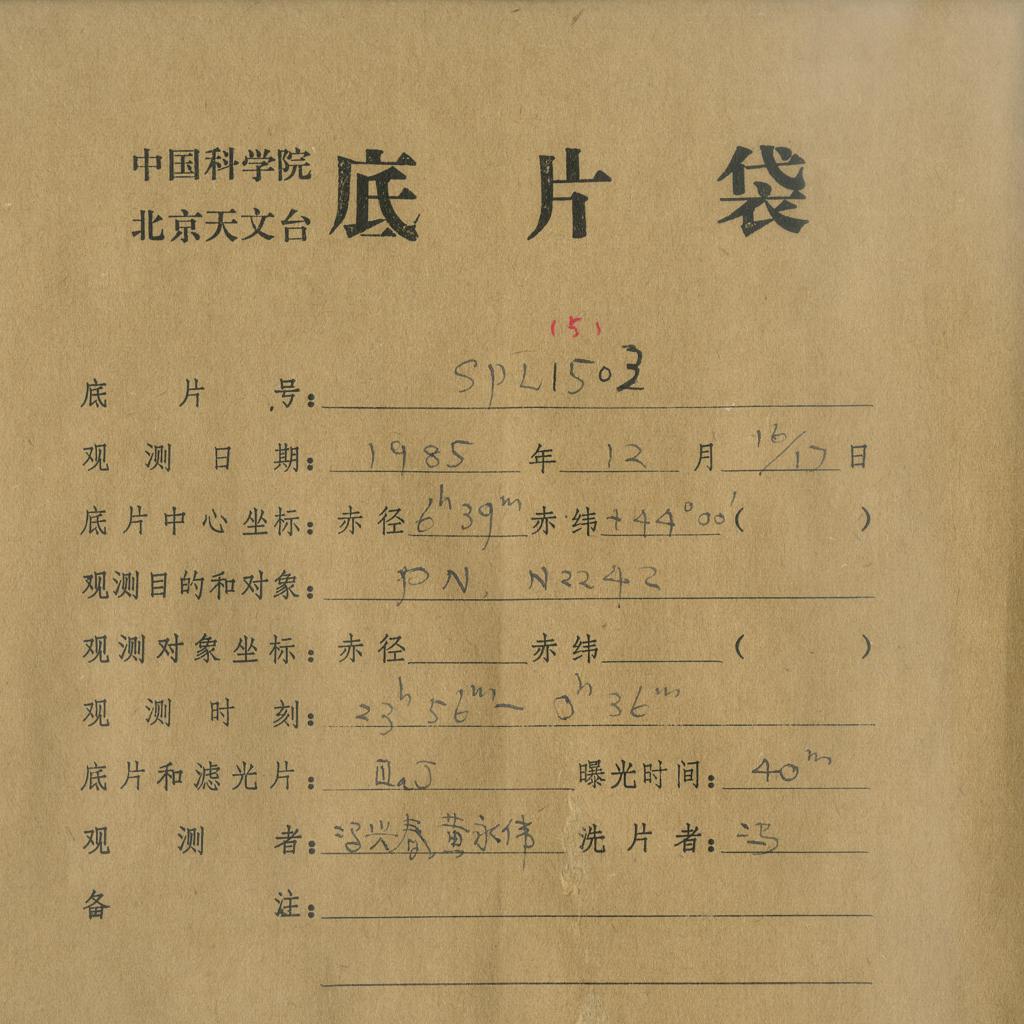 中国科学院
北京天文台
底片袋
(5)
底片号: SPL1503
观测日期: 1985 年 12 月 16/17 日
底片中心坐标: 赤径 6h 39m 赤纬 +44°00′ ( )
观测目的和对象: PN. N2242
观测对象坐标: 赤径 赤纬 ( )
观测时刻: 23h 56m — 0h 36m
底片和滤光片: IIIaJ 曝光时间: 40m
观测者: 冯兴春 黄永伟 洗片者: 冯
备注: